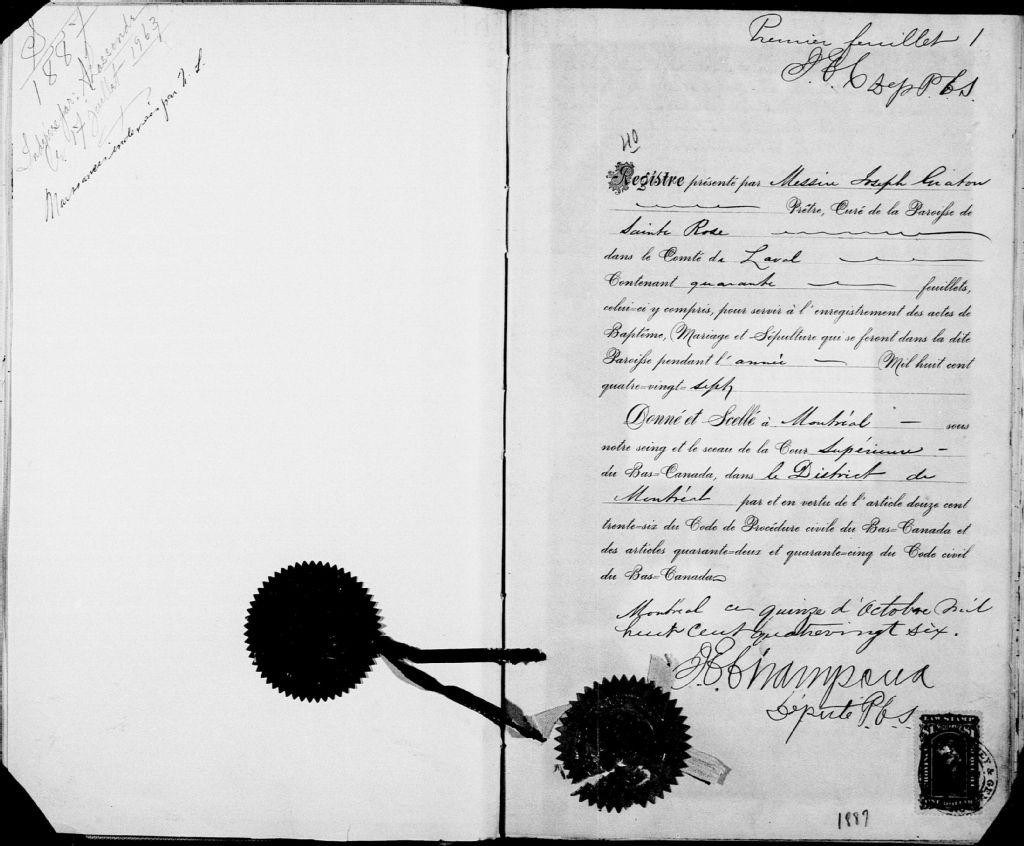 1887
Indexé par:
ce 17 juillet 1963
par
Premier feuillet 1
J.E.C Dep P.C.S.
40
Registre présenté par Messire Joseph
Prêtre, Curé de la Paroisse de
Sainte Rose
dans le Comté de Laval
Contenant quarante feuillets,
celui-ci y compris, pour servir à l'enregistrement des actes de
Baptême, Mariage et Sépulture qui se feront dans la dite
Paroisse pendant l'année Mil huit cent
quatre-vingt-sept
Donné et Scellé à Montréal sous
notre seing et le sceau de la Cour Supérieure
du Bas-Canada, dans le District de
Montréal par et en vertu de l'article douze cent
trente-six du Code de Procédure civile du Bas-Canada et
des articles quarante-deux et quarante-cinq du Code civil
du Bas-Canada
Montréal ce quinze d'Octobre Mil
huit cent quatrevingt six.
J.E. Champoux
Député P.C.S.
LAW STAMP
ONE DOLLAR
1887